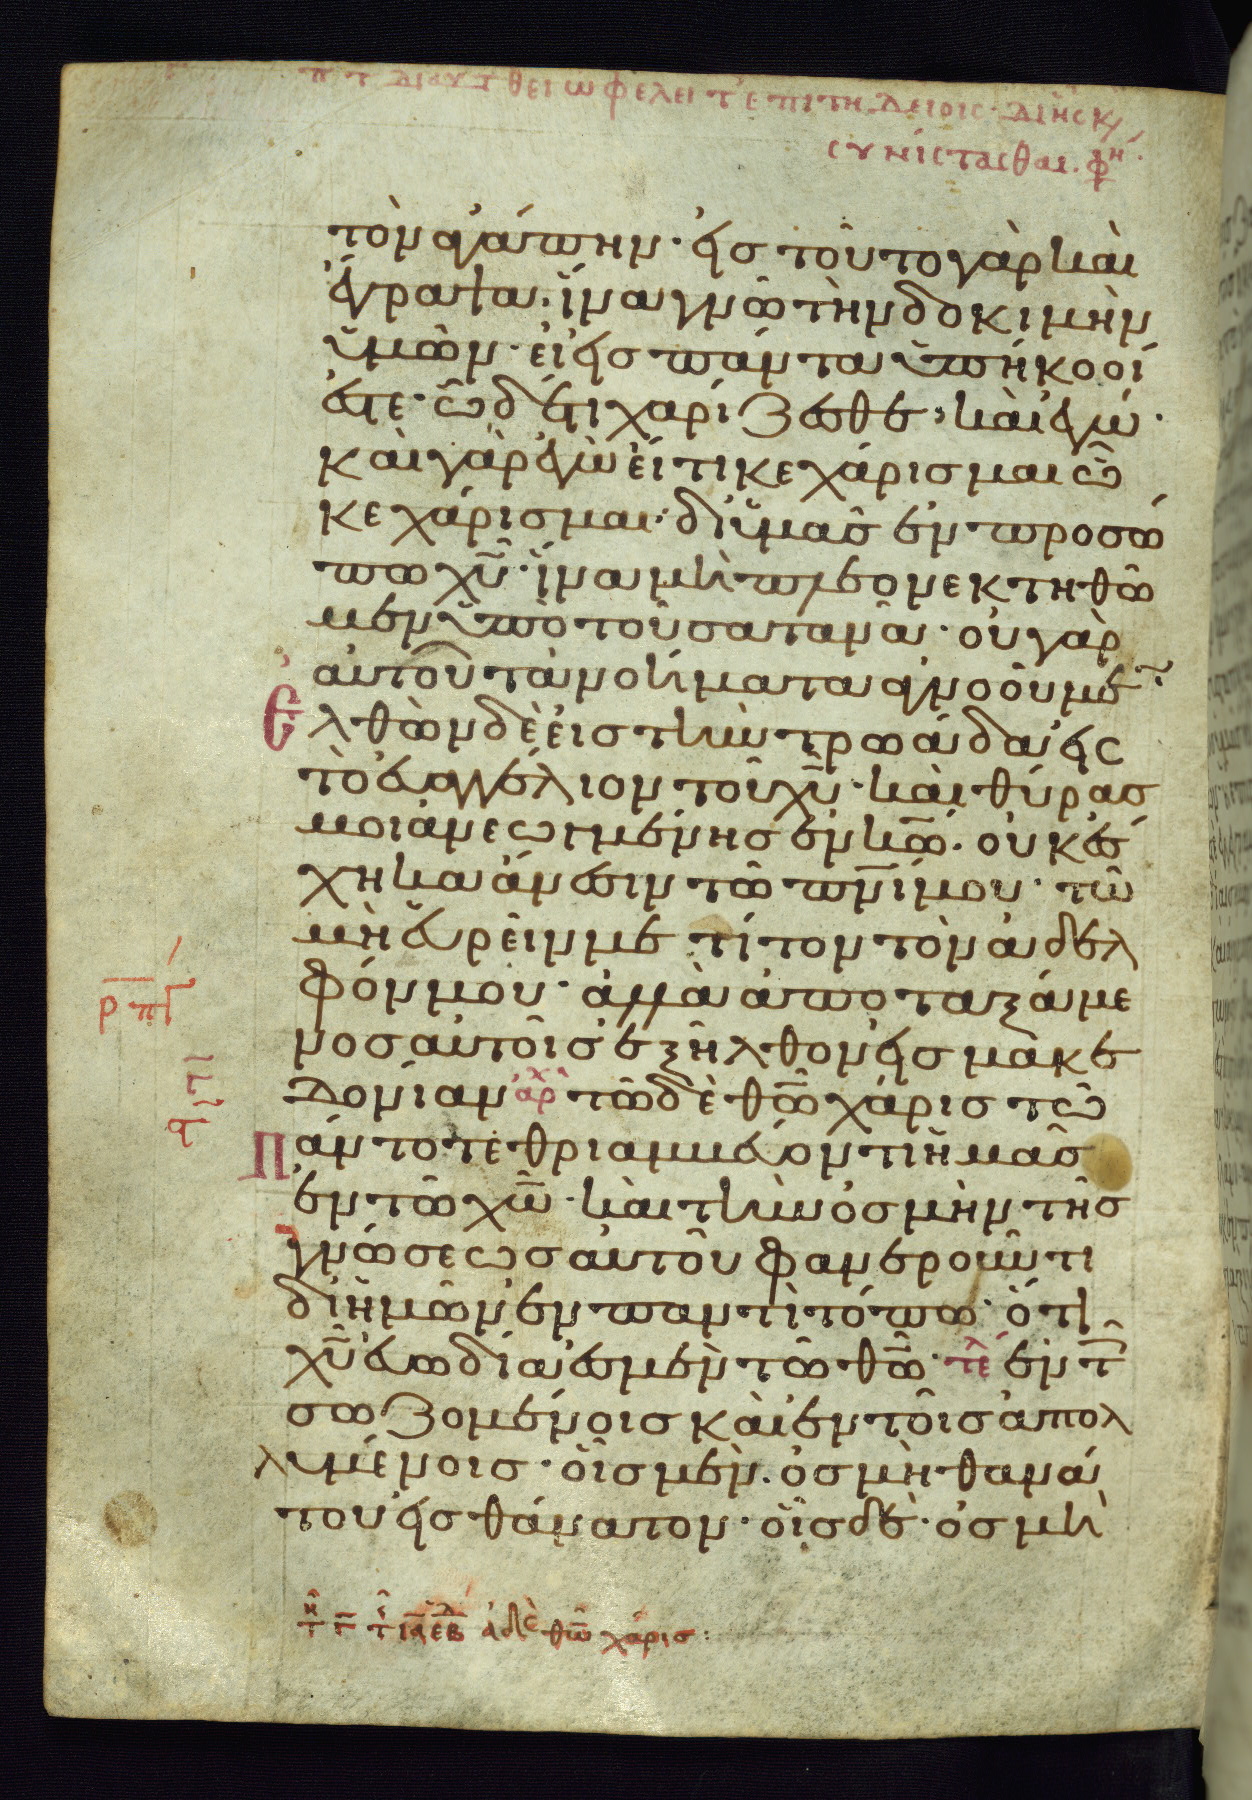 συνίστασθαι. φη
τὸν ἀγάπην· εἰς τοῦτο γὰρ καὶ
ἔγραψα· ἵνα γνῶ τὴν δοκιμὴν
ὑμῶν· εἰ εἰς πάντα ὑπήκοοί
ἐστε· ὧ δέ τι χαρίζεσθε· καὶ ἐγώ·
καὶ γὰρ ἐγὼ εἴ τι κεχάρισμαι ὧ
κεχάρισμαι· δι' ὑμᾶς ἐν προσώ
πω χυ· ἵνα μὴ πλεονεκτηθῶ
μεν ὑπὸ τοῦ σατανᾶ· οὐ γὰρ
αὐτοῦ τὰ νοήματα ἀγνοοῦμεν·
Ελθὼν δὲ εἰς τὴν τρωάδα εἰς
τὸ εὐαγγέλιον τοῦ χυ· καὶ θύρας
μοι ἀνεωγμένης ἐν κω. οὐκ ἔ
σχηκα ἄνεσιν τῶ πνι μου· τῶ
μὴ εὑρεῖν με τίτον τὸν ἀδελ
φόν μου· ἀλλὰ ἀποταξάμε
νος αὐτοῖς ἐξῆλθον εἰς μακε
δονίαν ἀρχ τῶ δὲ θω χάρις τῶ
Πάντοτε θριαμβεύοντι ἡμᾶς
ἐν τῶ χω· καὶ τὴν ὀσμὴν τῆς
γνώσεως αὐτοῦ φανεροῦντι
δι' ἡμῶν ἐν παντὶ τόπω· ὅτι
χυ εὐωδία ἐσμὲν τῶ θω· τε ἐν τ
σωζομένοις καὶ ἐν τοῖς ἀπολ
λυμένοις· οἷς μὲν. ὀσμὴ θανά
του εἰς θάνατον· οἷς δὲ· ὀσμὴ
ρπγ
ἀδε θω χάρις: